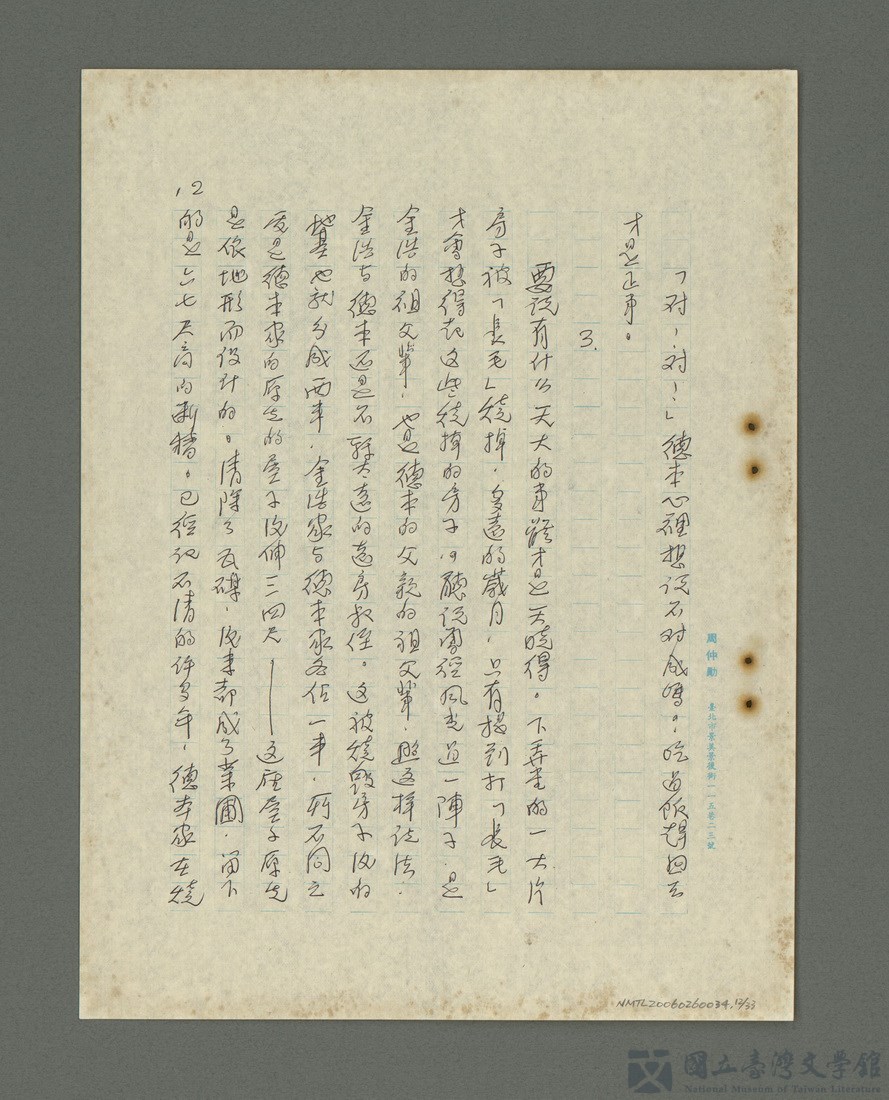 「对!对!」德本心裡想说不对成嗎。吃过飯趕回去
才是正事。
3.
要说有什么天大的事,才是天曉得。下弄里的一大片
房子被「長毛」燒掉,多遠的歲月,只有提到打「長毛」
才會想得起这些燒掉的房子,聽说曾經風光过一陣子,是
金浩的祖父輩,也是德本的父親的祖父輩,照这樣说法,
金浩与德本还是不算太遠的遠房叔侄。这被燒毀房子後的
地基也就分成两半,金浩家与德本家各佔一半,所不同之
處是德本家的原先的屋子後伸三四尺,——这座屋子原先
是依地形而设計的。清除了瓦礫,後来都成了菜圃,留下
的是六七尺高的斷牆。已經记不清的许多年,德本家在燒
12
周仲勳
臺北市景美景後街一一五巷二三號
NMTL20060260034,12/33
國立臺灣文學館
National Museum of Taiwan Literature